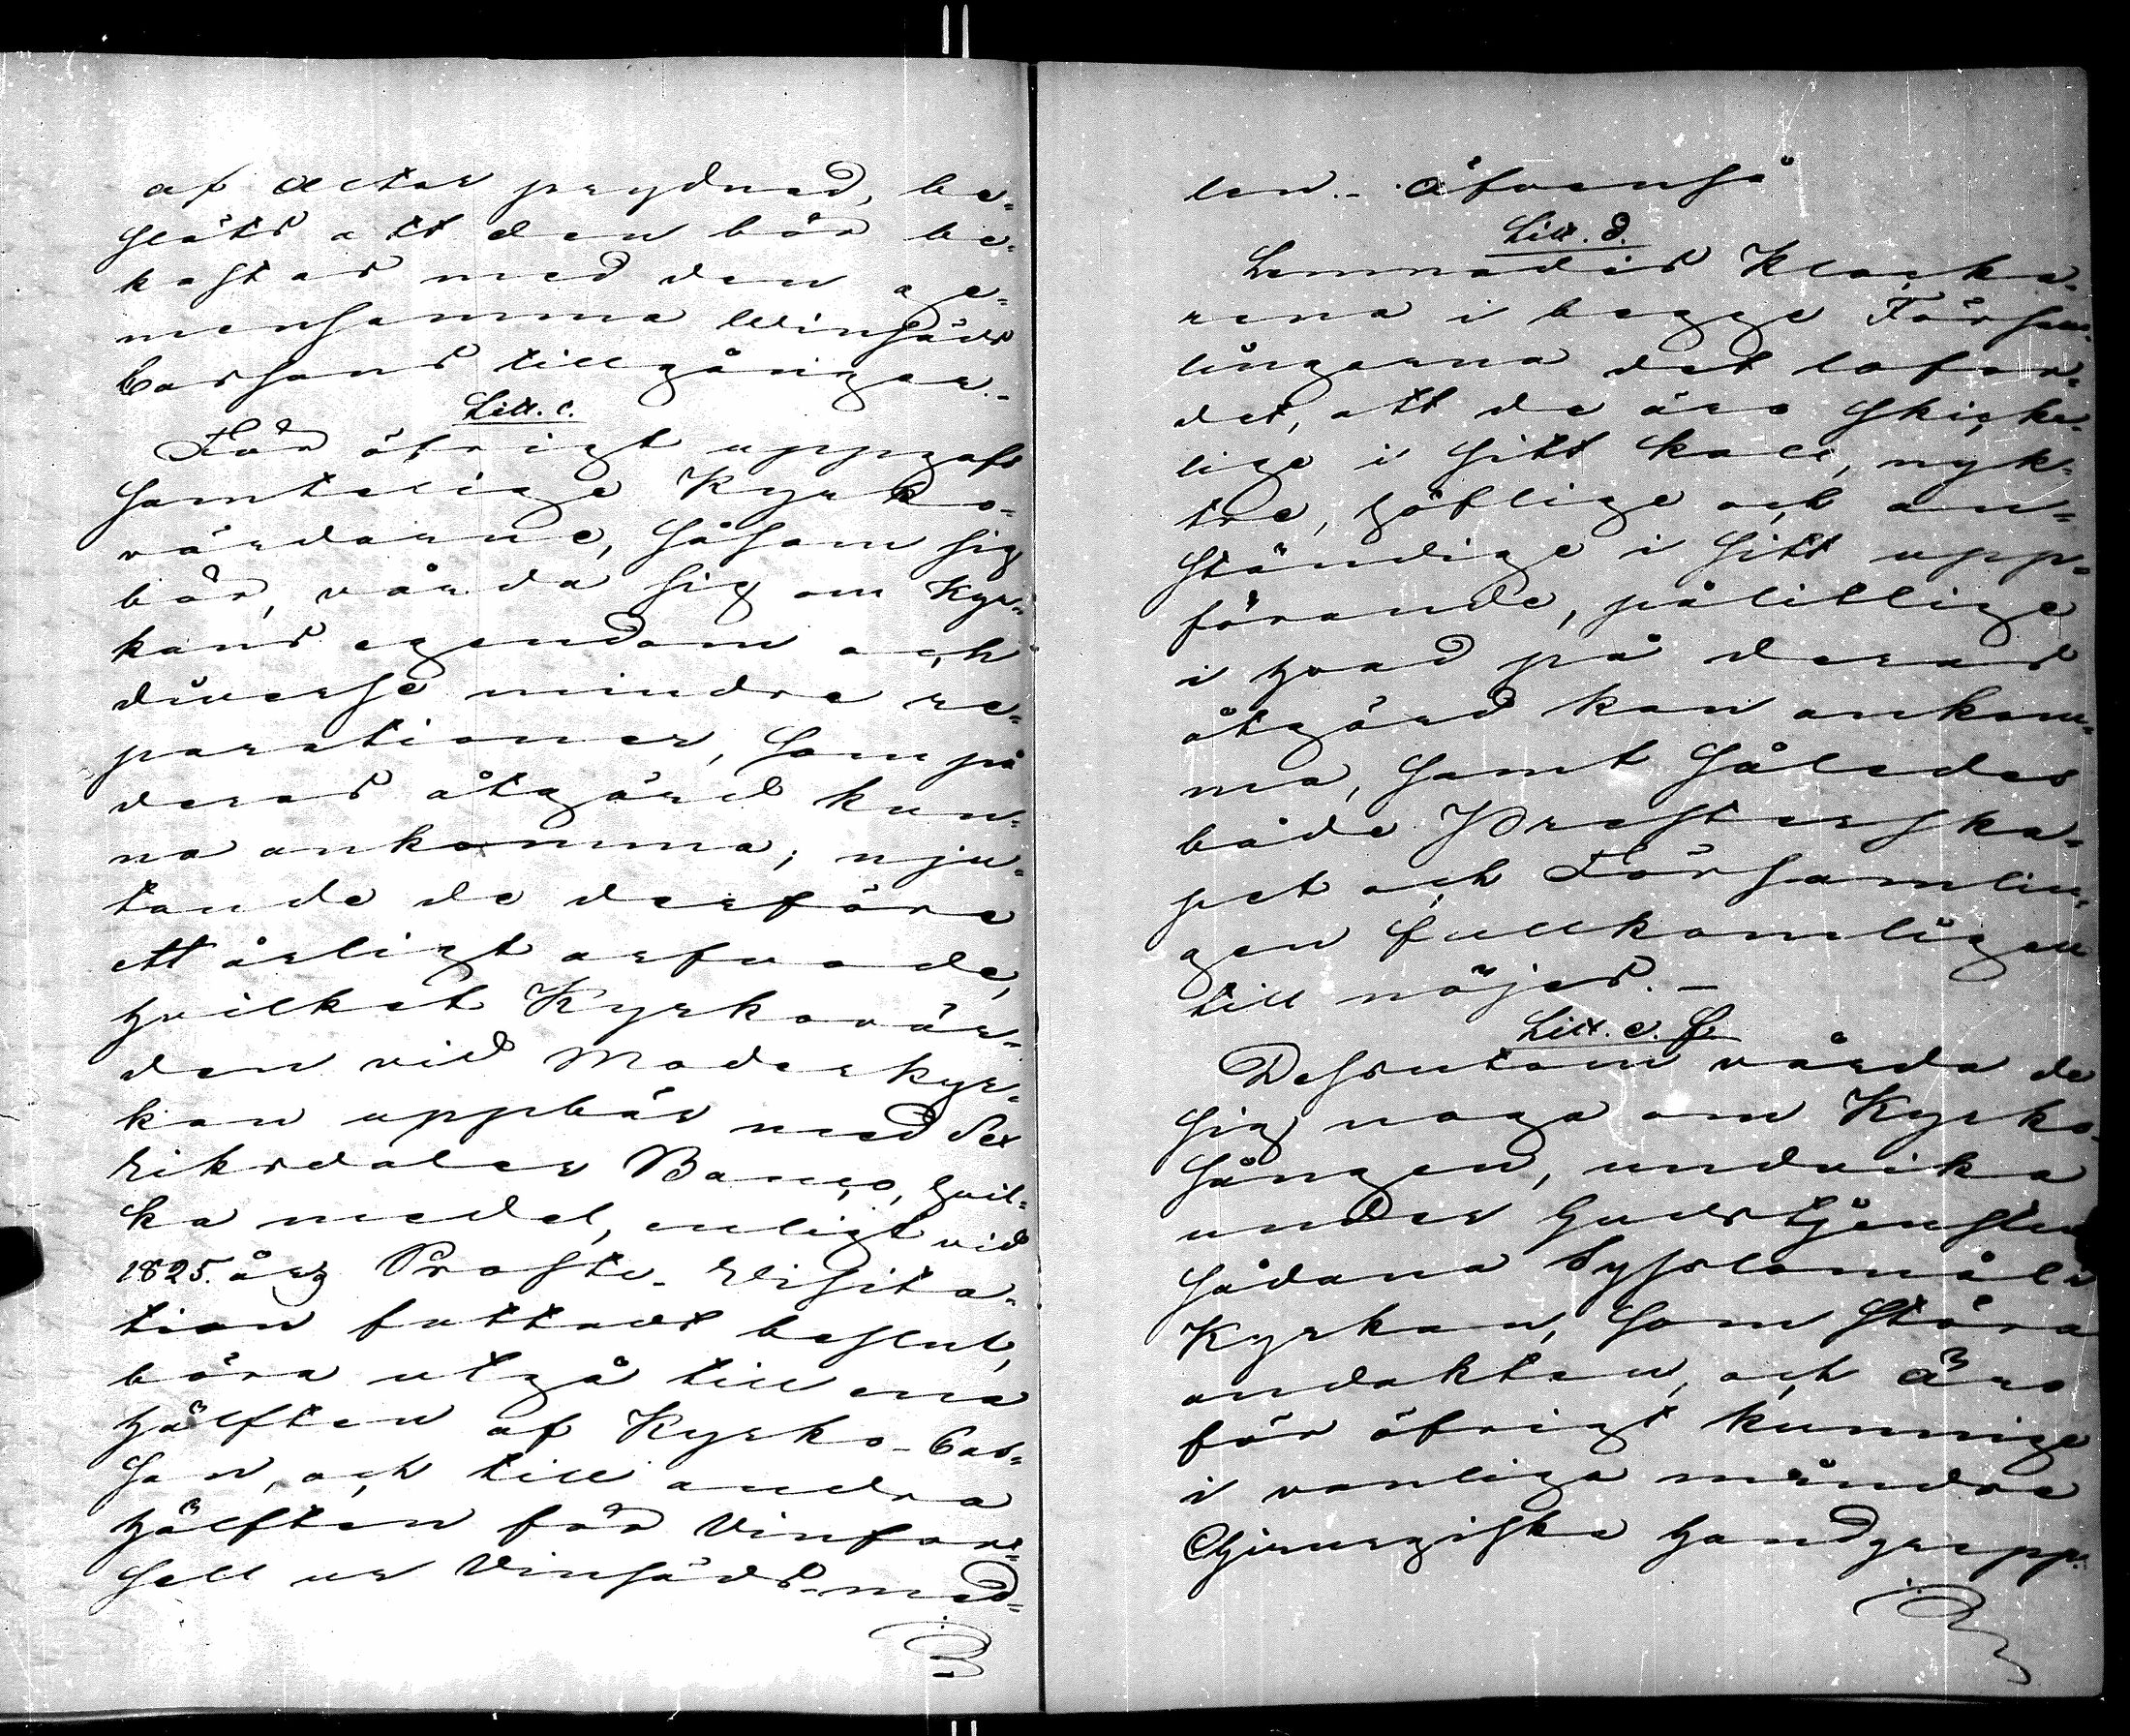 af Altar prydnad, be=
slöts att den bör be=
kostas med den ge=
mensamma Winsäds
Cassans tillgångar.-
Litt. c.
För öfrigt uppgafs
samtelige Kyrko=
värdarne, såsom sig
bör, vårda sig om Kyr=
kans egendom och
diverse mindre re=
parationer, som på
deras åtgärd kun=
na ankomma; nju=
tande de derföre
ett årligt arfvode,
hvilket Kyrkovär=
den vid Moderkyr=
kan uppbär med Sex
Riksdaler Banco, hvil=
ka medel, enligt vid
1825. års Proste-Visita=
tion fattadt beslut,
böra utgå till ena
hälften af Kyrko-Cas=
san, och till andra
hälften för Vinfor=
sell ur Vinsäds-med=
len.- Äfvenså
Litt. d.
Lemnades Klocka=
rena i begge Försam=
lingarna det loford=
det, att de äro skicke=
lige i sitt kall, nyk=
tre, höflige och an=
ständige i sitt upp=
förande, pålitlige
i hvad på deras
åtgärd kan ankom=
ma, samt således
både Presterska=
pet och Församlin=
gen fullkomligen
till nöjes.-
Litt. e. f.
Dessutom vårda de
sig noga om Kyrko=
sången, undvika
under Gudstjensten
sådana Sysslomål i
Kyrkan, som störa
andakten, och äro
för öfrigt kunnige
i vanliga mindre
Chirurgiska handgrepp.